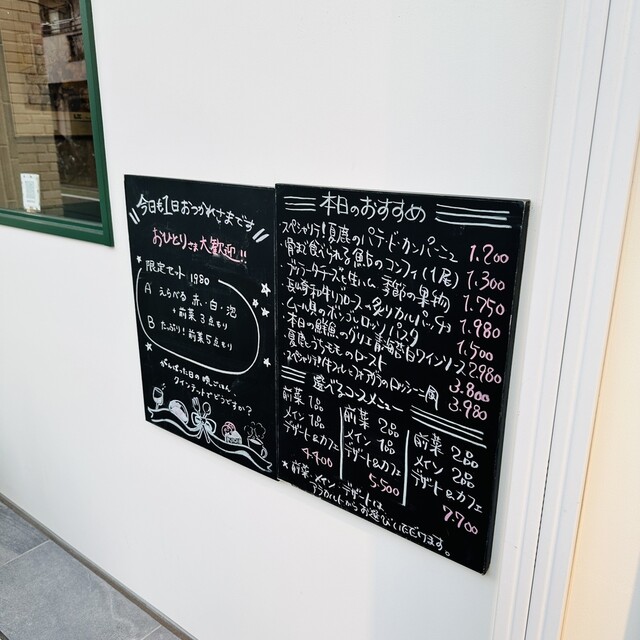 今日も1日おつかれさまです
おひとりさま大歓迎!!
限定セット 1980
A えらべる 赤・白・泡
+前菜3点もり
B たっぷり!前菜5点もり
がんばった日の晩ごはん
クインテットでどうですか?
本日のおすすめ
スペシャリテ!夏鹿のパテ・ド・カンパーニュ 1.200
・骨まで食べられる鮎のコンフィ(1尾) 1.300
・ブリータチーズと生ハム 季節の果物 1.750
・長崎和牛リブロース 炙りカルパッチョ 1.980
・ムール貝のボンゴレロッソ パスタ 1.500
・本日の鮮魚のグリエ 白ワインソース 2980
・夏鹿うちもものロースト 3.800
・スペシャリテ!牛フィレとフォアグラのロッシーニ風 3.980
選べるコースメニュー
前菜 1品
メイン 1品
デザート&カフェ
4.400
前菜 2品
メイン 1品
デザート&カフェ
5.500
前菜 2品
メイン 2品
デザート&カフェ
7.700
*前菜・メイン・デザートは
アラカルトからお選びいただけます。